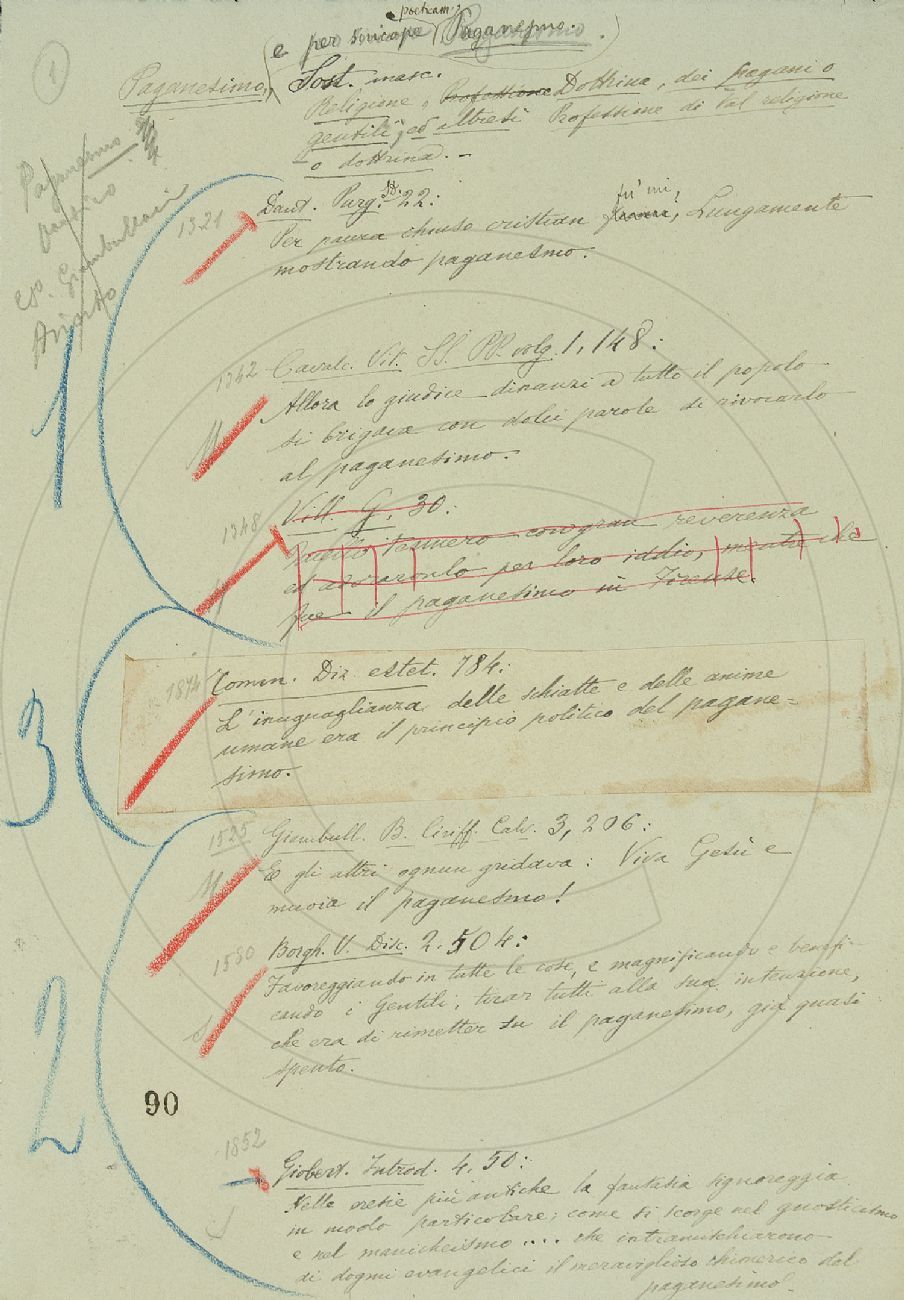 1
poetcam.:
e per Sincope Paganesmo.
Paganesimo, Sost. masc.
Religione, Professione Dottrina, dei pagani o
gentili; ed altresì Professione di tal religione
o dottrina. -
Paganesmo
antico
es. Giambullari
Ariosto
1321
Dant. Purg. 22:
Per paura chiuso cristian fu' mi, Lungamente
mostrando paganesmo.
1
1342
Cavalc. Vit. SS. PP. volg. 1, 148:
Allora lo giudice dinanzi a tutto il popolo
si brigava con dolci parole di rivocarlo
al paganesimo.
1348
Vill. G. 30:
tennero con gran reverenza
ed adoraronlo per loro iddio, mentre che
fue il paganesimo in Firenze.
3
1874
Comen. Diz. estet. 784:
L'inuguaglianza delle schiatte e delle anime
umane era il principio politico del pagane-
simo.
1525
Giambull. B. Ciriff. Calv. 3, 206:
E gli altri ognun gridava: Viva Gesù e
muoia il paganesmo!
1580
Borgh. V. Disc. 2. 504:
Favoreggiando in tutte le cose, e magnificando e benefi-
cando i Gentili, tirar tutti alla sua intenzione,
che era di rimetter su il paganesimo, già quasi
spento.
2
90
1852
Giobert. Introd. 4. 50:
Nelle eresie più antiche la fantasia signoreggia
in modo particolare; come si scorge nel gnosticismo
e nel manicheismo .... che intramischiarono
di dogmi evangelici il meraviglioso chimerico del
paganesimo.